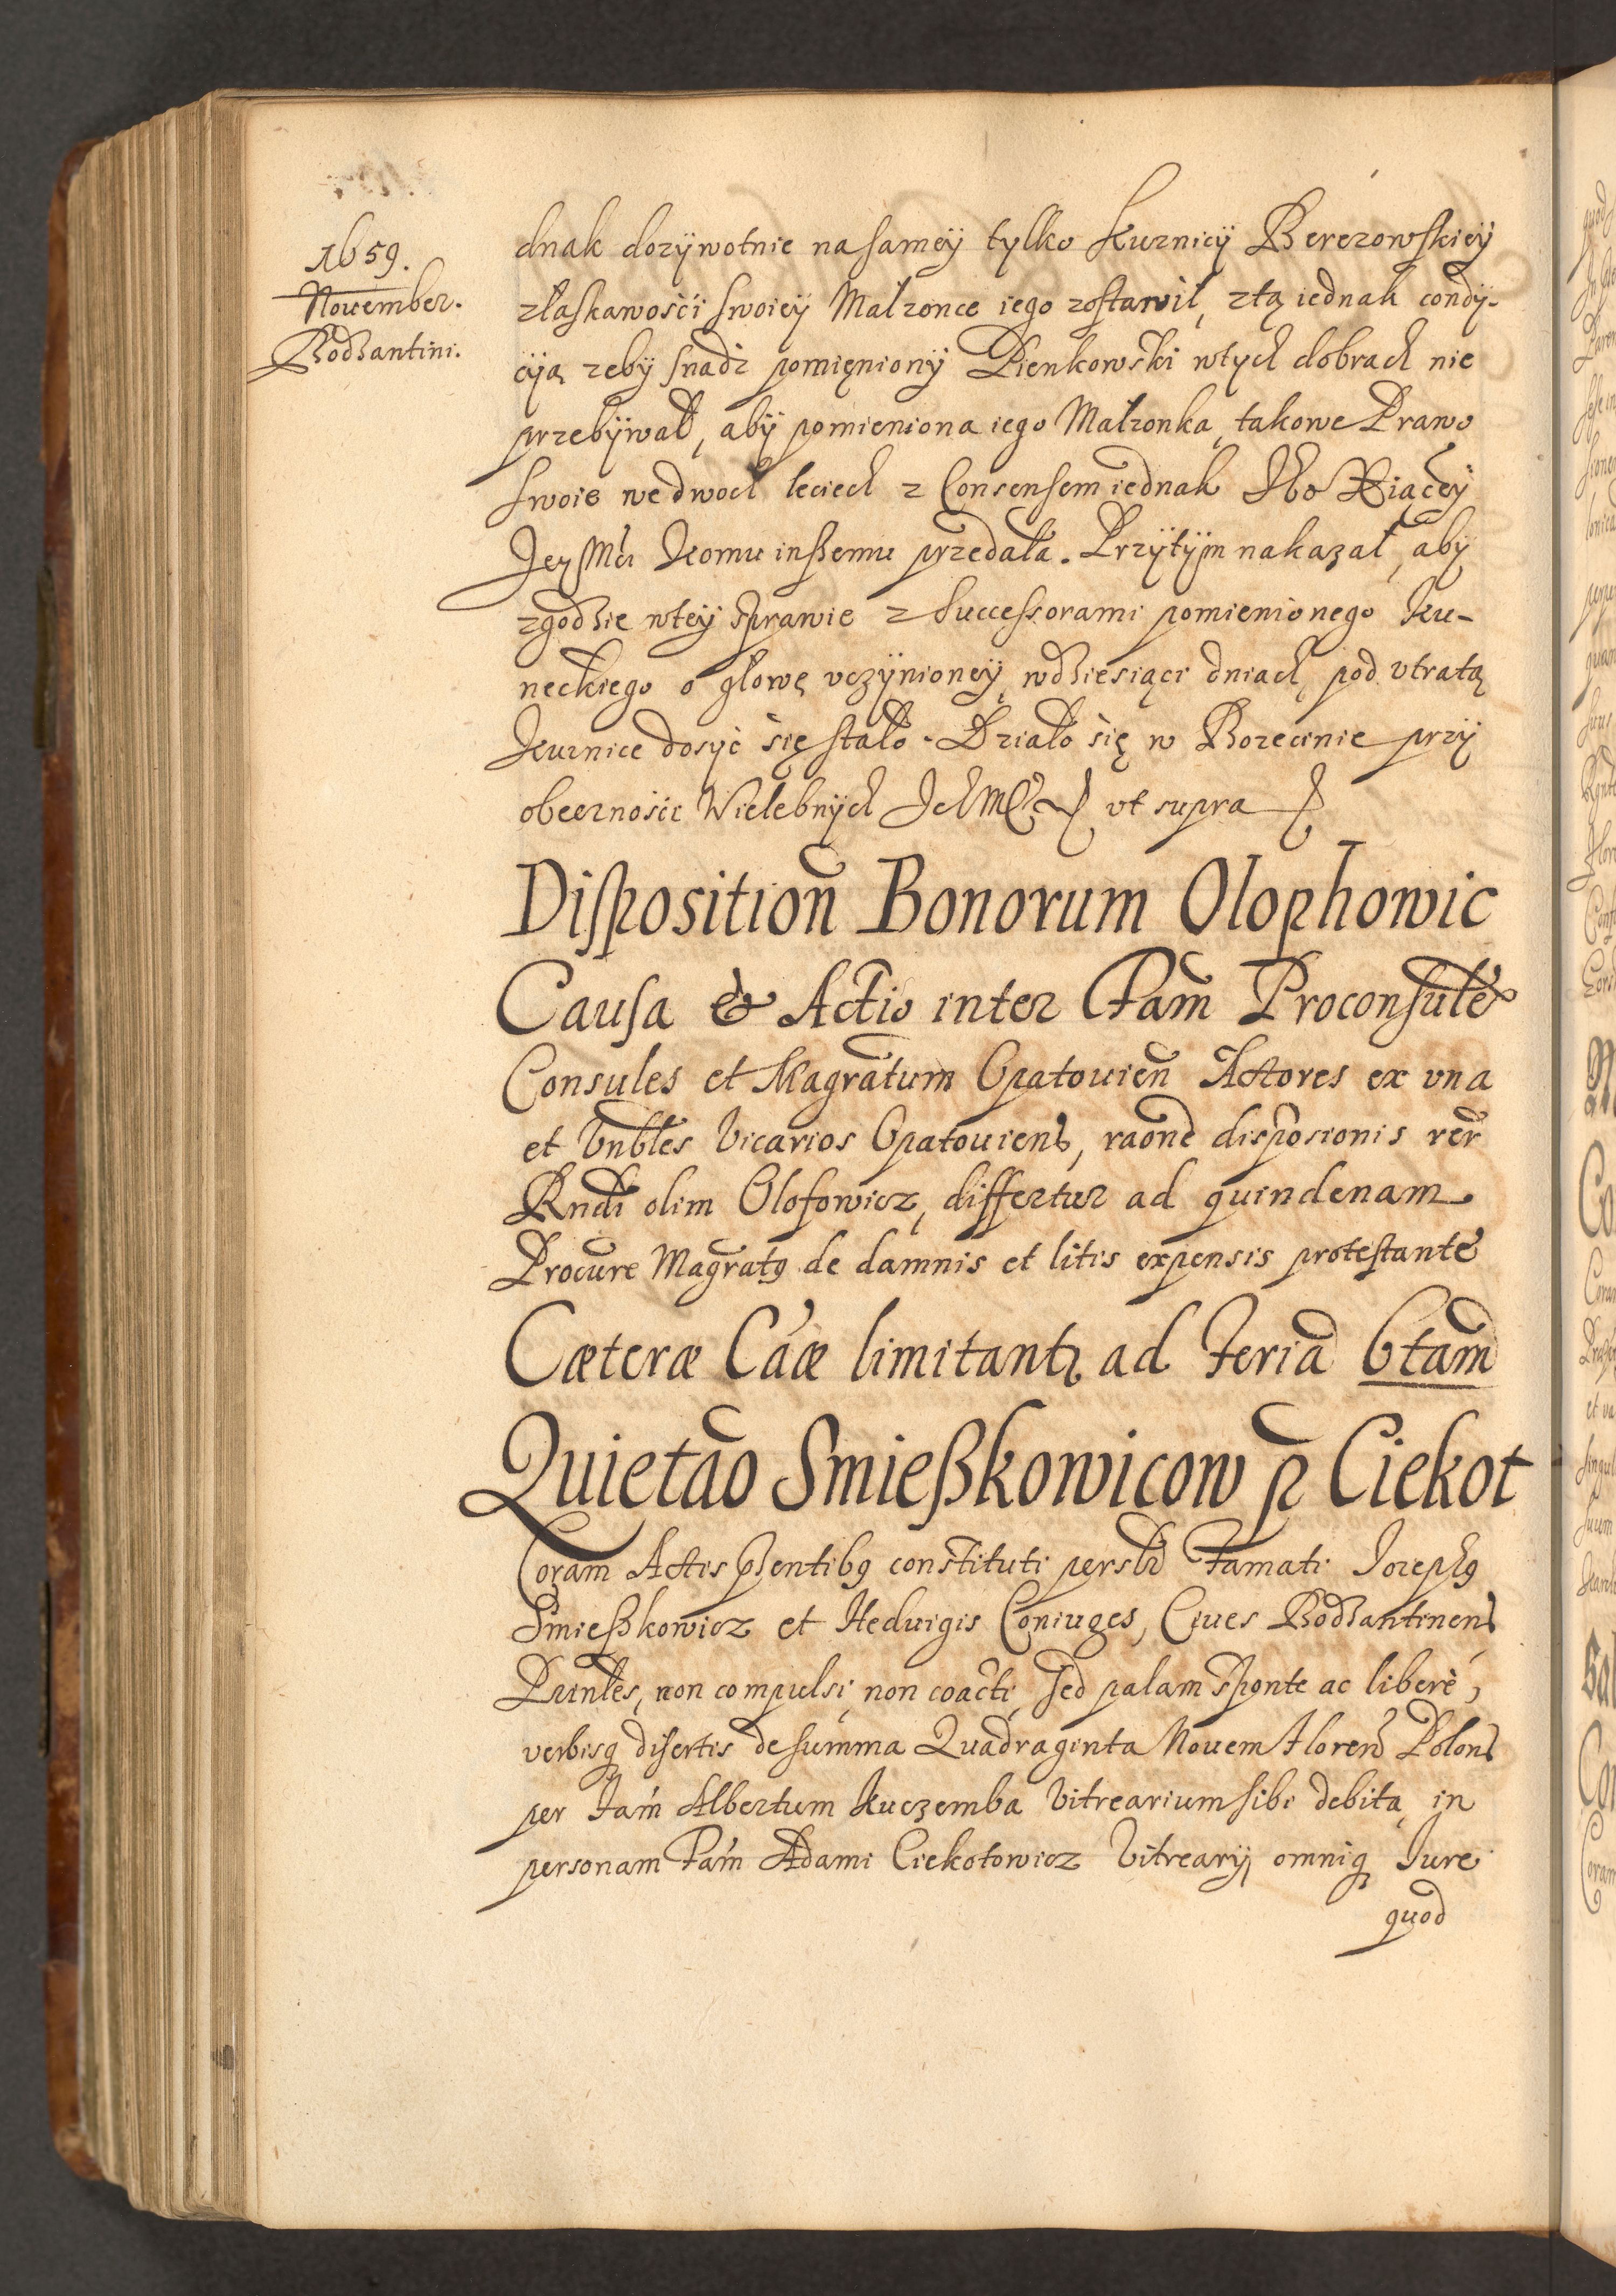 1659.
Nouember.
Bodzantini.
dnak dozÿwotnie na sameÿ tylko Kuznicÿ Berezowskieÿ
z łaskawości swoieÿ Małzonce iego zostawił, z tą iednak condÿ-
cÿą zebÿ snadz pomięnionÿ Pienkowski w tÿch dobrach nie
przebÿwał, abÿ pomieniona iego Małzonka, takowe Prawo
swoie we dwoch leciech z Consensem iednak Xiącęÿ
Jeÿ Mći komu inßemu przedała. Przÿtÿm nakazał, abÿ
zgodzie w teÿ sprawie z Successorami pomienionego Ku-
neckiego o głowę vczÿnioneÿ, w dziesiąci dniach, pod vtratą
Kuznice dosÿć się stało. Działo się w Bozecinie przÿ
obecznoście Wielebnÿch Ich M vt supra
Dispositioñ Bonorum Olophowic
Causa & Actio inter Fam̃ Proconsulẽ
Consules et Magrãtum Opatouieñ Actores ex vna
et Vnbl̃es Vicarios Opatouiens, raõne disposĩonis rer̃
Rndi olim Olofowicz, differtur ad quindenam
Procur̃e Magratq de damnis et litis expensis protestante
Cæteræ Caãe limitantr ad Feriã 6tam
Quietaõ Smießkowicow p Ciekot
Coram Actis pñsentibq constituti persłr Famati Iozephq
Smießkowicz et Heduigis Coniuges, Ciues Bodzantinens
Pñntes, non compulsi, non coacti, sed palam sponte ac liberè,
verbisq disertis de summa Quadraginta Nouem Floren Polons
per Fam̃ Albertum Kuczemba Vitrearium sibi debita, in
personam Fam̃ Adami Ciekotowicz Vitrearij omniq Iure
quod